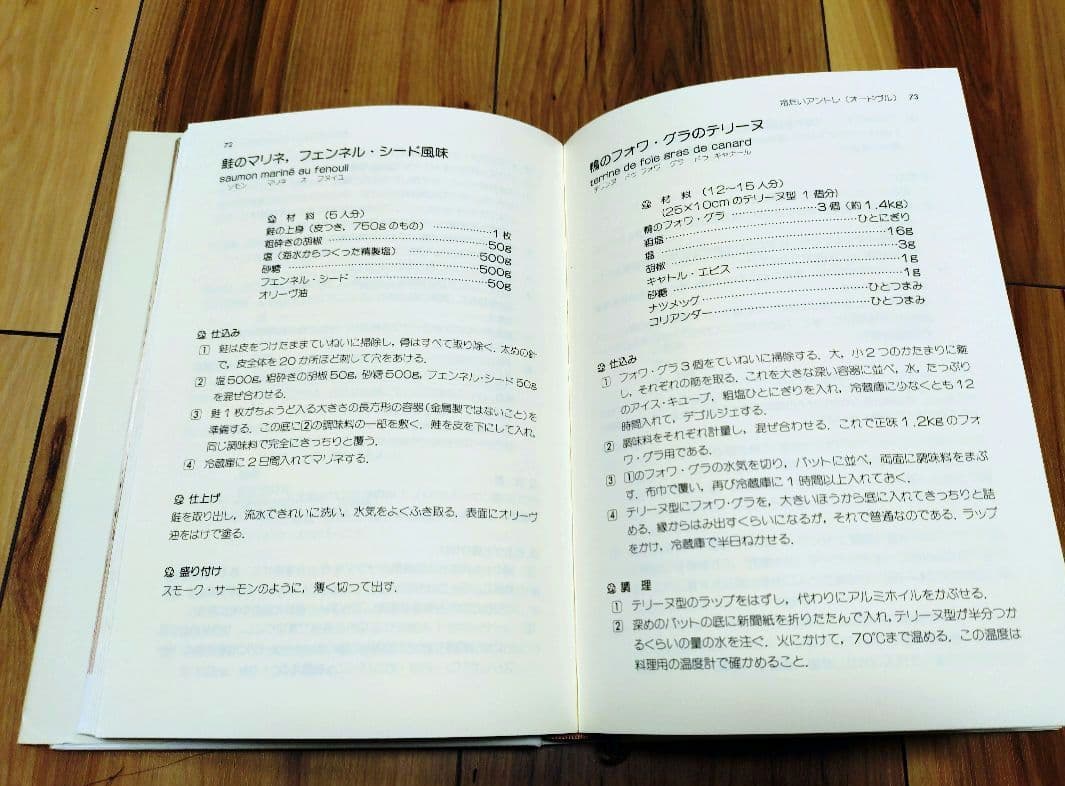 72
鮭のマリネ，フェンネル・シード風味
saumon mariné au fenouil
ソモン マリネ オ フヌイユ
材 料 (5人分)
鮭の上身（皮つき，750gのもの）…………1枚
粗砕きの胡椒……………………50g
塩（海水からつくった精製塩）…………500g
砂糖……………………500g
フェンネル・シード……………………50g
オリーヴ油
仕込み
① 鮭は皮をつけたままていねいに掃除し，骨はすべて取り除く．太めの針
で，皮全体を20か所ほど刺して穴をあける．
② 塩500g，粗砕きの胡椒50g，砂糖500g，フェンネル・シード50g
を混ぜ合わせる．
③ 鮭1枚がちょうど入る大きさの長方形の容器(金属製ではないこと)を
準備する．この底に②の調味料の一部を敷く．鮭を皮を下にして入れ，
同じ調味料で完全にきっちりと覆う．
④ 冷蔵庫に2日間入れてマリネする．
仕上げ
鮭を取り出し，流水できれいに洗い，水気をよくふき取る．表面にオリーヴ
油をはけで塗る．
盛り付け
スモーク・サーモンのように，薄く切って出す．
冷たいアントレ（オードヴル） 73
鴨のフォワ・グラのテリーヌ
terrine de foie gras de canard
テリーヌ ドゥ フォワ グラ ドゥ キャナール
材 料 (12～15人分)
(25×10cmのテリーヌ型 1個分)
鴨のフォワ・グラ……………………3個（約1.4kg）
粗塩……………………ひとにぎり
塩……………………16g
胡椒……………………3g
キャトル・エピス……………………1g
砂糖……………………1g
ナツメッグ……………………ひとつまみ
コリアンダー……………………ひとつまみ
仕込み
① フォワ・グラ3個をていねいに掃除する．大，小2つのかたまりに離
し，それぞれの筋を取る．これを大きな深い容器に並べ，水，たっぷり
のアイス・キューブ，粗塩ひとにぎりを入れ，冷蔵庫に少なくとも12
時間入れて，デゴルジェする．
② 調味料をそれぞれ計量し，混ぜ合わせる．これで正味1.2kgのフォ
ワ・グラ用である．
③ ①のフォワ・グラの水気を切り，バットに並べ，両面に調味料をまぶ
す．布巾で覆い，再び冷蔵庫に1時間以上入れておく．
④ テリーヌ型にフォワ・グラを，大きいほうから底に入れてきっちりと詰
める．縁からはみ出すくらいになるが，それで普通なのである．ラップ
をかけ，冷蔵庫で半日ねかせる．
調 理
① テリーヌ型のラップをはずし，代わりにアルミホイルをかぶせる．
② 深めのバットの底に新聞紙を折りたたんで入れ，テリーヌ型が半分つか
るくらいの量の水を注ぐ．火にかけて，70℃まで温める．この温度は
料理用の温度計で確かめること．